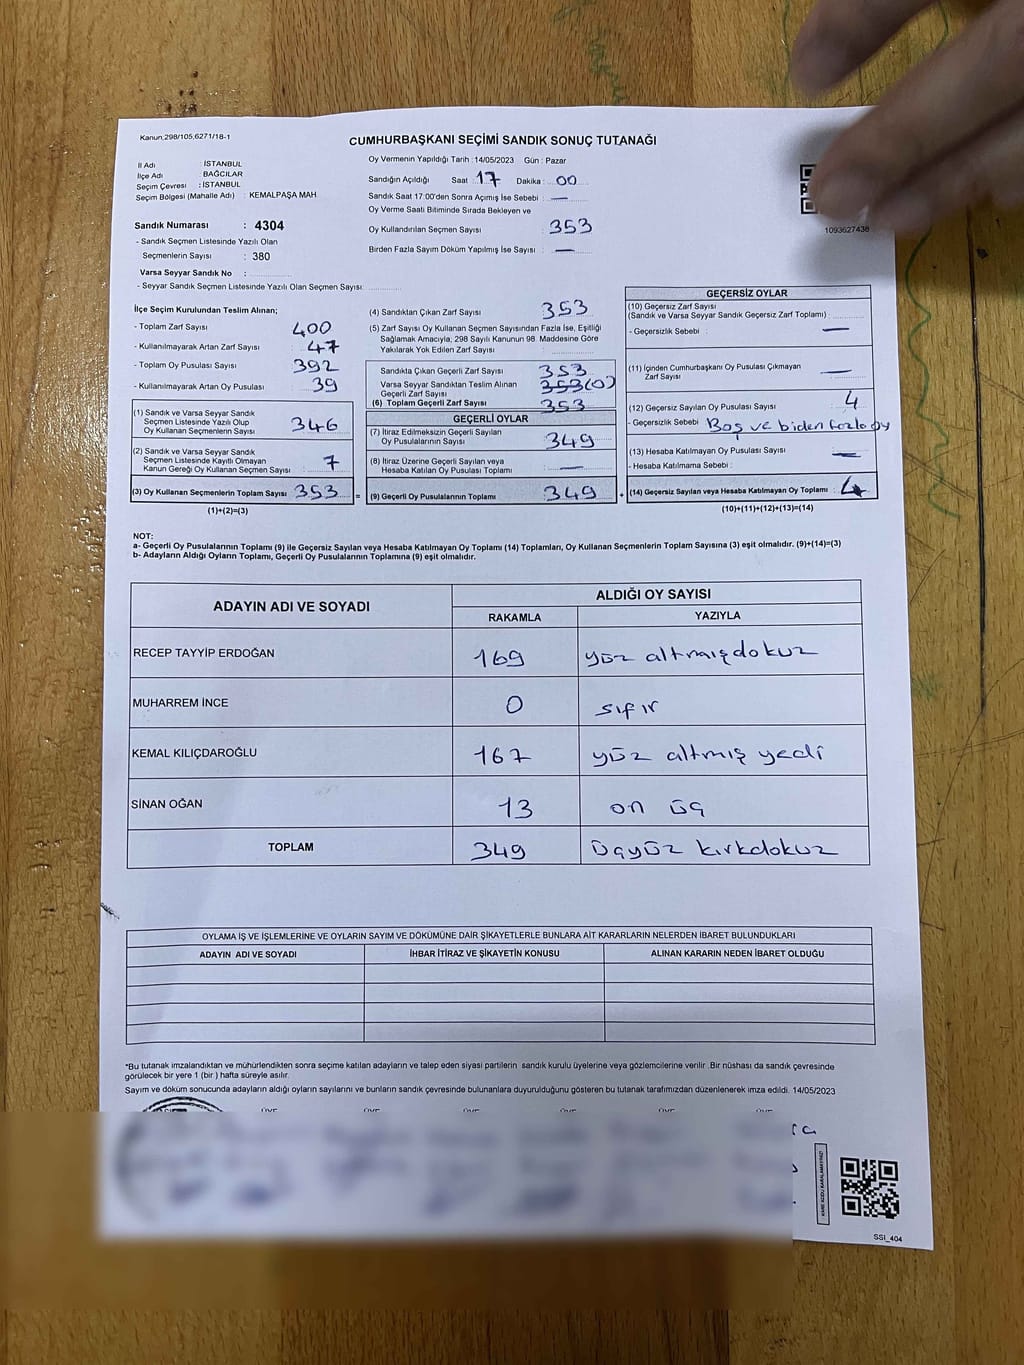 Kanun,298/105,6271/18-1
CUMHURBAŞKANI SEÇİMİ SANDIK SONUÇ TUTANAĞI
İl Adı : İSTANBUL
İlçe Adı : BAĞCILAR
Seçim Çevresi : İSTANBUL
Seçim Bölgesi (Mahalle Adı) : KEMALPAŞA MAH.
Sandık Numarası : 4304
- Sandık Seçmen Listesinde Yazılı Olan
Seçmenlerin Sayısı : 380
Varsa Seyyar Sandık No :
- Seyyar Sandık Seçmen Listesinde Yazılı Olan Seçmen Sayısı:
Oy Vermenin Yapıldığı Tarih : 14/05/2023 Gün : Pazar
Sandığın Açıldığı Saat : 17 Dakika : 00
Sandık Saat 17:00'den Sonra Açımış İse Sebebi : —
Oy Verme Saati Bitiminde Sırada Bekleyen ve
Oy Kullandırılan Seçmen Sayısı 353
Birden Fazla Sayım Döküm Yapılmış İse Sayısı : —
1093627438
İlçe Seçim Kurulundan Teslim Alınan;
- Toplam Zarf Sayısı 400
- Kullanılmayarak Artan Zarf Sayısı 47
- Toplam Oy Pusulası Sayısı 392
- Kullanılmayarak Artan Oy Pusulası 39
(1) Sandık ve Varsa Seyyar Sandık
Seçmen Listesinde Yazılı Olup
Oy Kullanan Seçmenlerin Sayısı 346
(2) Sandık ve Varsa Seyyar Sandık
Seçmen Listesinde Kayıtlı Olmayan
Kanun Gereği Oy Kullanan Seçmen Sayısı 7
(3) Oy Kullanan Seçmenlerin Toplam Sayısı 353
(1)+(2)=(3)
(4) Sandıktan Çıkan Zarf Sayısı 353
(5) Zarf Sayısı Oy Kullanan Seçmen Sayısından Fazla İse, Eşitliği
Sağlamak Amacıyla; 298 Sayılı Kanunun 98. Maddesine Göre
Yakılarak Yok Edilen Zarf Sayısı
Sandıkta Çıkan Geçerli Zarf Sayısı 353
Varsa Seyyar Sandıktan Teslim Alınan
Geçerli Zarf Sayısı 353 (0)
(6) Toplam Geçerli Zarf Sayısı 353
GEÇERLİ OYLAR
(7) İtiraz Edilmeksizin Geçerli Sayılan
Oy Pusulalarının Sayısı 349
(8) İtiraz Üzerine Geçerli Sayılan veya
Hesaba Katılan Oy Pusulası Toplamı —
= (9) Geçerli Oy Pusulalarının Toplamı 349 +
GEÇERSİZ OYLAR
(10) Geçersiz Zarf Sayısı
(Sandık ve Varsa Seyyar Sandık Geçersiz Zarf Toplamı)
- Geçersizlik Sebebi : —
(11) İçinden Cumhurbaşkanı Oy Pusulası Çıkmayan
Zarf Sayısı —
(12) Geçersiz Sayılan Oy Pusulası Sayısı 4
- Geçersizlik Sebebi Boş ve biden fazla oy
(13) Hesaba Katılmayan Oy Pusulası Sayısı —
- Hesaba Katılmama Sebebi :
(14) Geçersiz Sayılan veya Hesaba Katılmayan Oy Toplamı : 4
(10)+(11)+(12)+(13)=(14)
NOT:
a- Geçerli Oy Pusulalarının Toplamı (9) ile Geçersiz Sayılan veya Hesaba Katılmayan Oy Toplamı (14) Toplamları, Oy Kullanan Seçmenlerin Toplam Sayısına (3) eşit olmalıdır. (9)+(14)=(3)
b- Adayların Aldığı Oyların Toplamı, Geçerli Oy Pusulalarının Toplamına (9) eşit olmalıdır.
ADAYIN ADI VE SOYADI
ALDIĞI OY SAYISI
RAKAMLA YAZIYLA
RECEP TAYYİP ERDOĞAN 169 yüz altmışdokuz
MUHARREM İNCE 0 sıfır
KEMAL KILIÇDAROĞLU 167 yüz altmış yedi
SİNAN OĞAN 13 on üç
TOPLAM 349 üçyüz kırkdokuz
OYLAMA İŞ VE İŞLEMLERİNE VE OYLARIN SAYIM VE DÖKÜMÜNE DAİR ŞİKAYETLERLE BUNLARA AİT KARARLARIN NELERDEN İBARET BULUNDUKLARI
ADAYIN ADI VE SOYADI İHBAR İTİRAZ VE ŞİKAYETİN KONUSU ALINAN KARARIN NEDEN İBARET OLDUĞU
*Bu tutanak imzalandıktan ve mühürlendikten sonra seçime katılan adayların ve talep eden siyasi partilerin sandık kurulu üyelerine veya gözlemcilerine verilir .Bir nüshası da sandık çevresinde
görülecek bir yere 1 (bir ) hafta süreyle asılır.
Sayım ve döküm sonucunda adayların aldığı oyların sayılarını ve bunların sandık çevresinde bulunanlara duyurulduğunu gösteren bu tutanak tarafımızdan düzenlenerek imza edildi. 14/05/2023
SSI_404